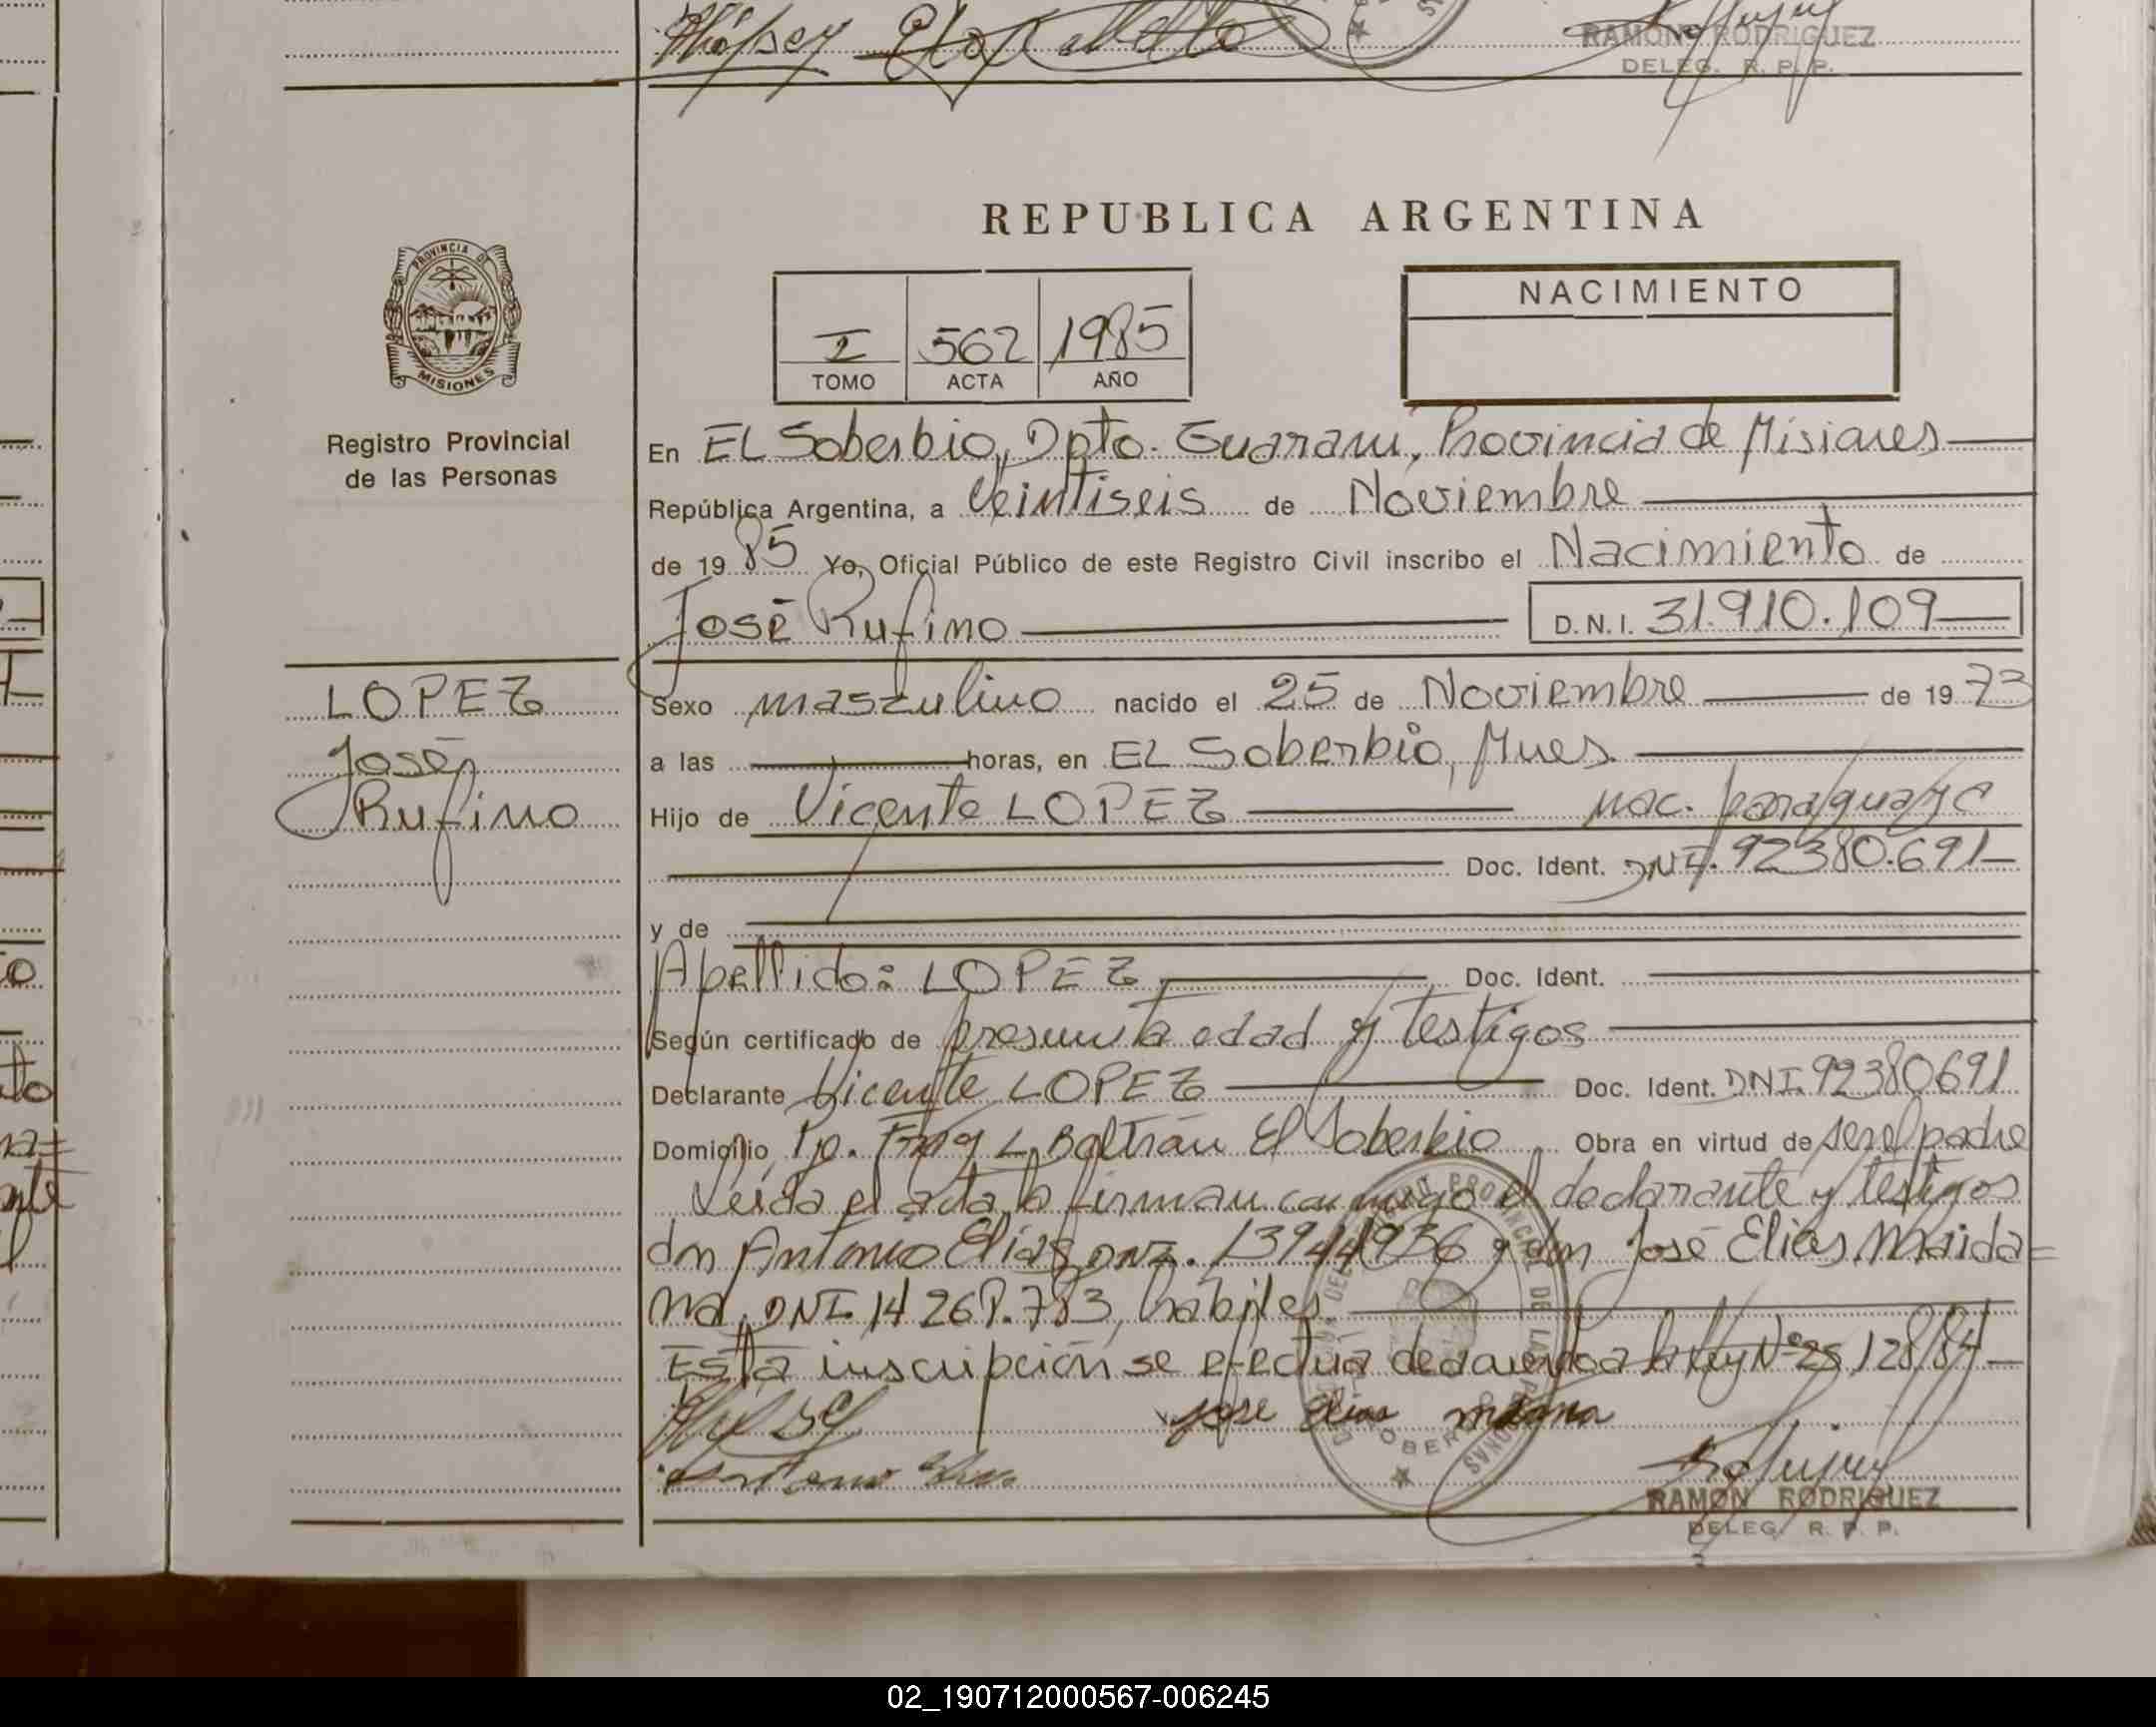 RAMON RODRIGUEZ
DELEG. R. P. P.
REPUBLICA ARGENTINA
PROVINCIA DE
MISIONES
Registro Provincial
de las Personas
I 562 1985
TOMO ACTA AÑO
NACIMIENTO
En EL Soberbio, Dpto. Guarani, Provincia de Misiones
República Argentina, a Veintiseis de Noviembre
de 1985 Yo, Oficial Público de este Registro Civil inscribo el Nacimiento de
José Rufino D.N.I. 31.910.109
LOPEZ
José
Rufino
Sexo masculino nacido el 25 de Noviembre de 1973
a las horas, en EL Soberbio, Mnes.
Hijo de Vicente LOPEZ nac. paraguaya
Doc. Ident. DNI. 92380.691
y de
Apellido: LOPEZ Doc. Ident.
Según certificado de presunta edad y testigos
Declarante Vicente LOPEZ Doc. Ident. DNI. 92380691
Domicilio Pp. Fray L Beltrán El Soberbio Obra en virtud de ser el padre
Leida el acta la firman conmigo el declarante y testigos
don Antonio Elias DNI. 13944936 y don José Elias Maida=
na, DNI 14 268.783, habiles
Esta inscripción se efectua de acuerdo a la ley Nº 23128/84
jose Elias
RAMON RODRIGUEZ
DELEG. R. P. P.
02_190712000567-006245